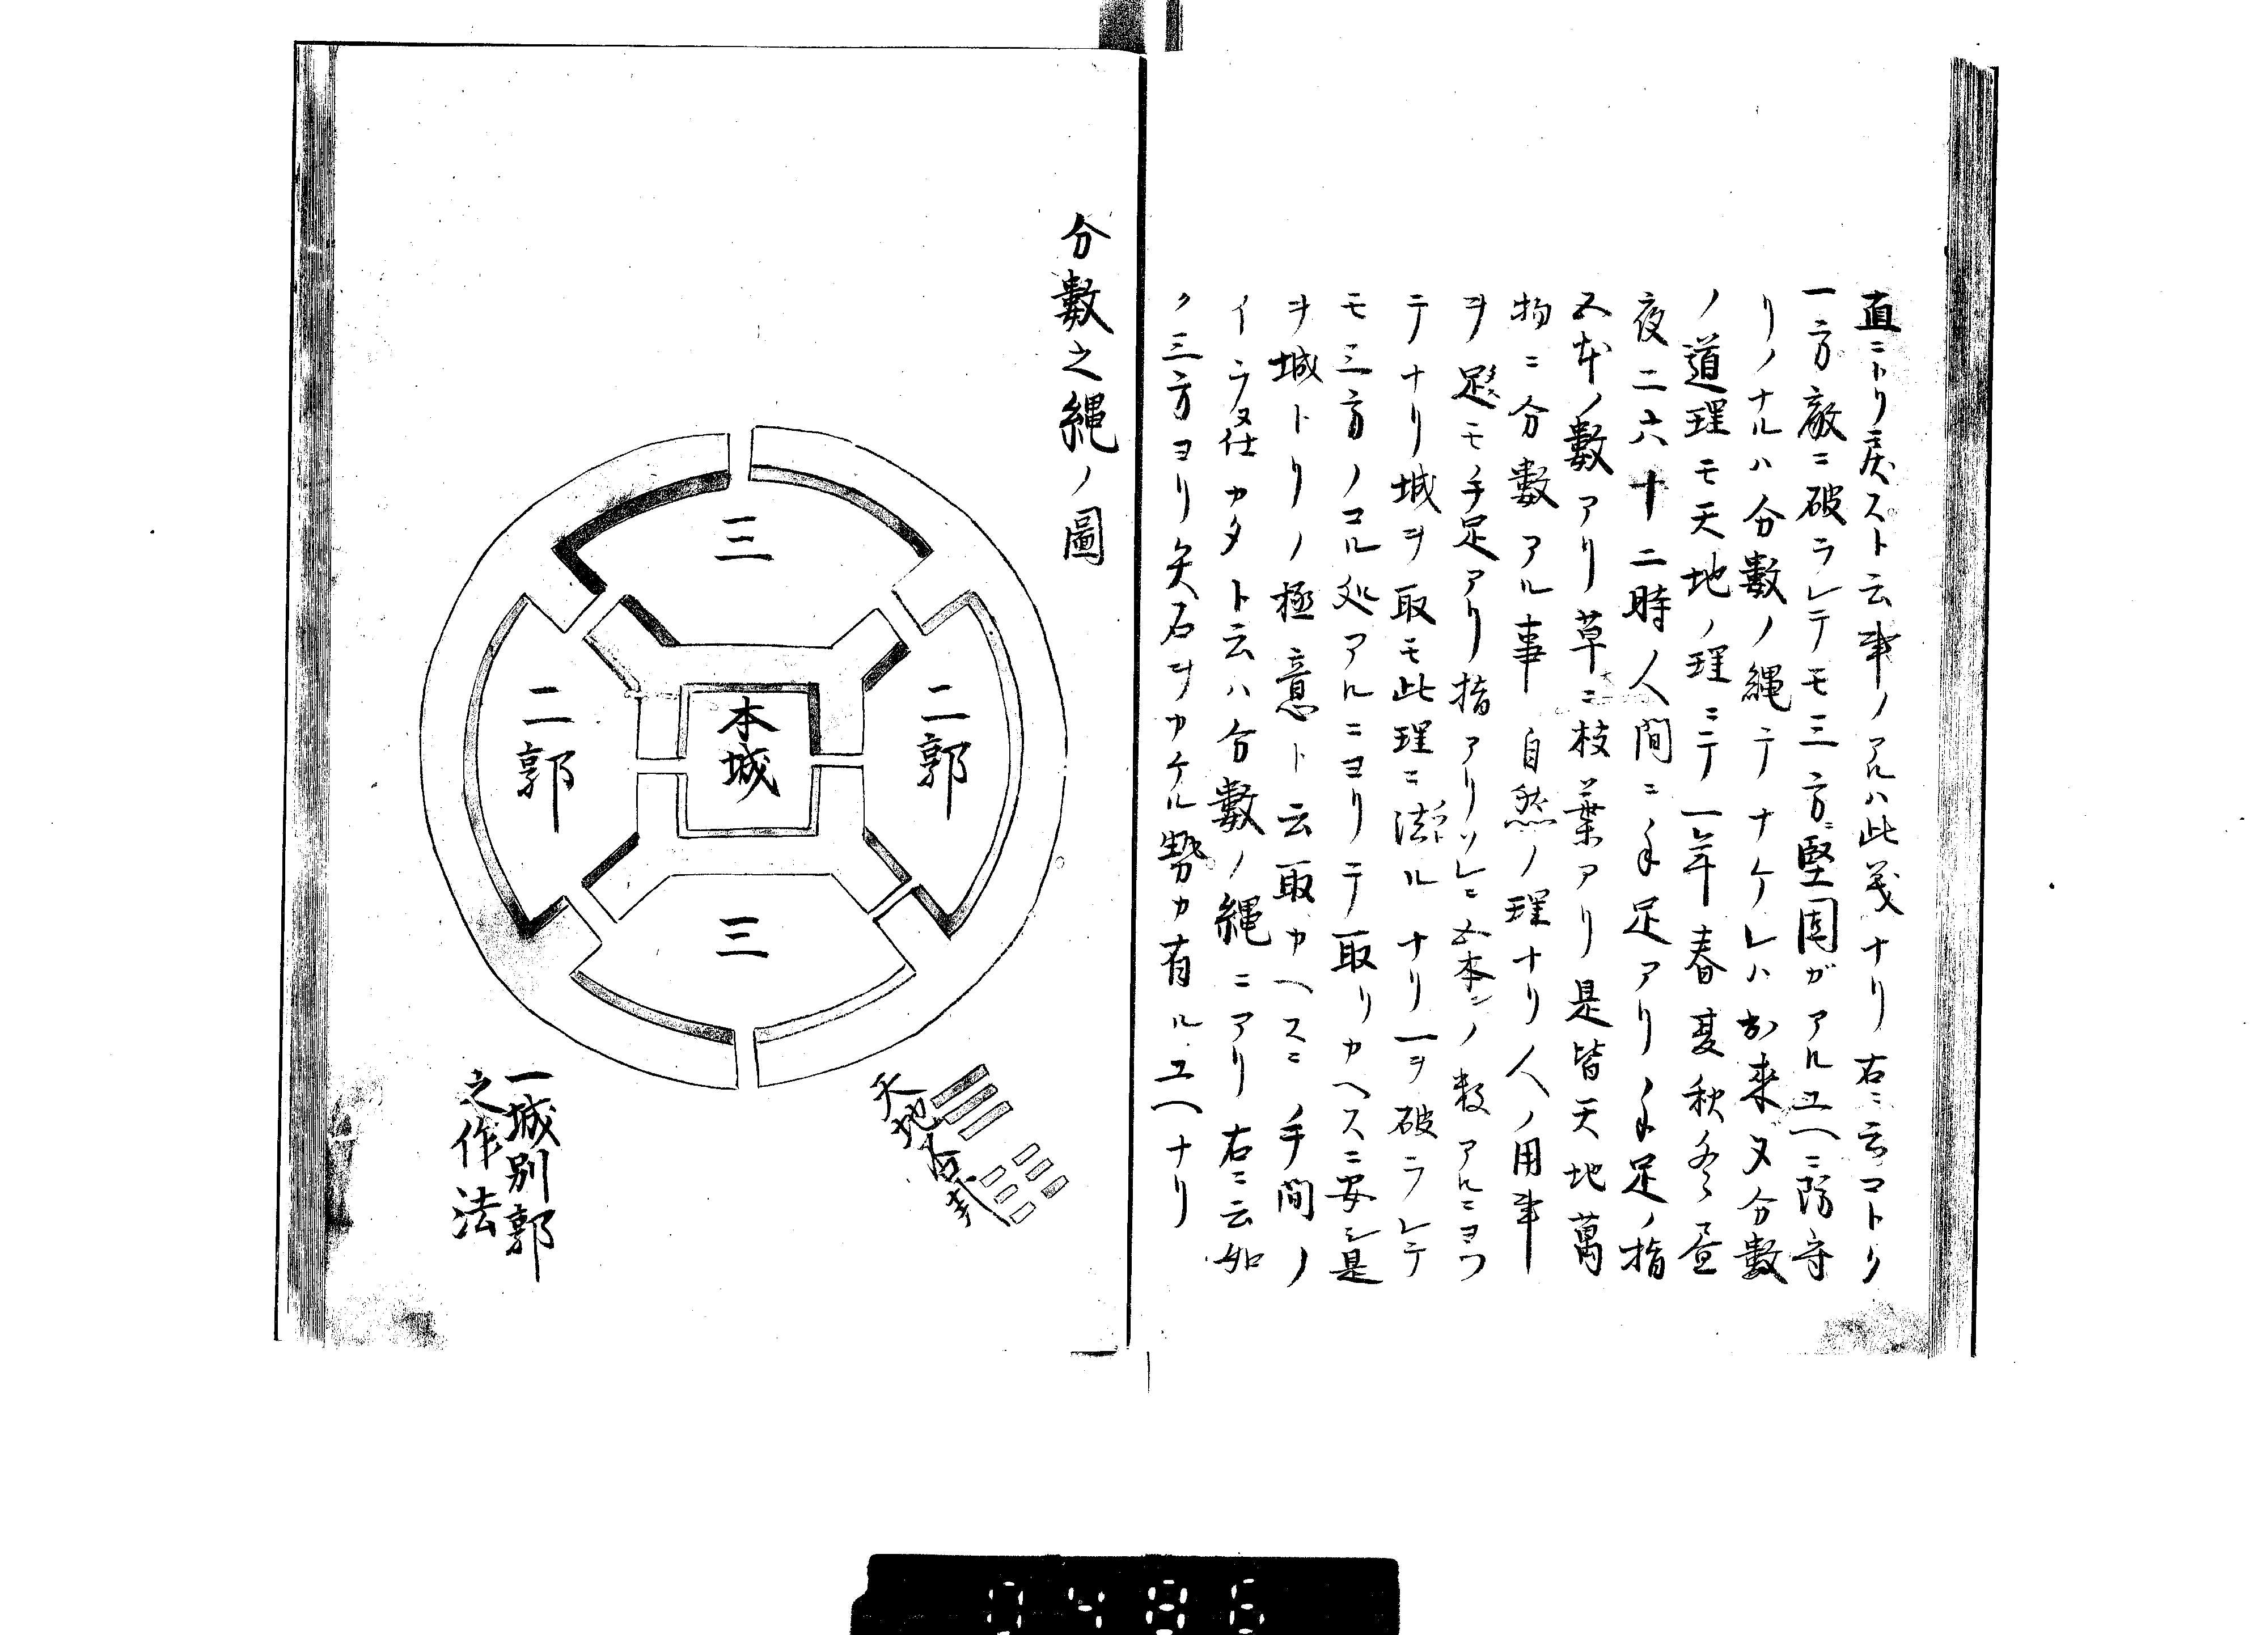 直ニトリ戻スト云事ノアルハ此義ナリ右ニ云コトク
一方敵ニ破ラレテモ三方堅固ガアルユヘニ防守
リノナルハ分數ノ縄テナケレハ出来ヌ分數
ノ道理モ天地ノ理ニテ一年春夏秋冬昼
夜二六十二時人間ニ手足アリ手足ノ指
五本ノ數アリ草ニ枝葉アリ是皆天地萬
物ニ分數アル事自然ノ理ナリ人ノ用事
ヲ足モ手足アリ指アリソレニ五本ンノ数アルニヨツ
テナリ城ヲ取モ此理ニ法ルナリ一ヲ破ラレテ
モ三方ノコル処アルニヨリテ取リカヘスニ安シ是
ヲ城トリノ極意ト云取カヘスニ手間ノ
イラヌ仕カタト云ハ分數ノ縄ニアリ右ニ云如
ク三方ヨリ矢石ヲカケル勢カ有ルユヘナリ
分數之縄ノ圖
三
二郭
本城
二郭
三
天地
一城別郭
之作法
0486